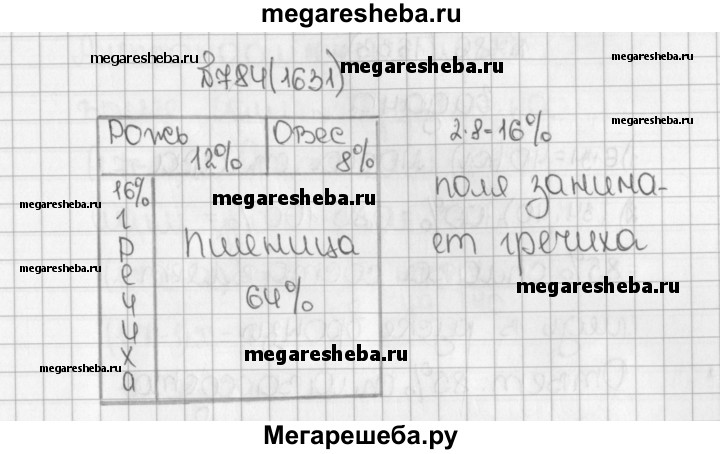 megaresheba.ru
megaresheba.ru
№784(1631)
megaresheba.ru
Рожь
12%
Овес
8%
2·8=16%
megaresheba.ru
поля занима-
ет гречиха
16%
г
р
е
ч
и
х
а
megaresheba.ru
megaresheba.ru
Пшеница
64%
megaresheba.ru
megaresheba.ru
megaresheba.ru
megaresheba.ru
Мегарешеба.ру